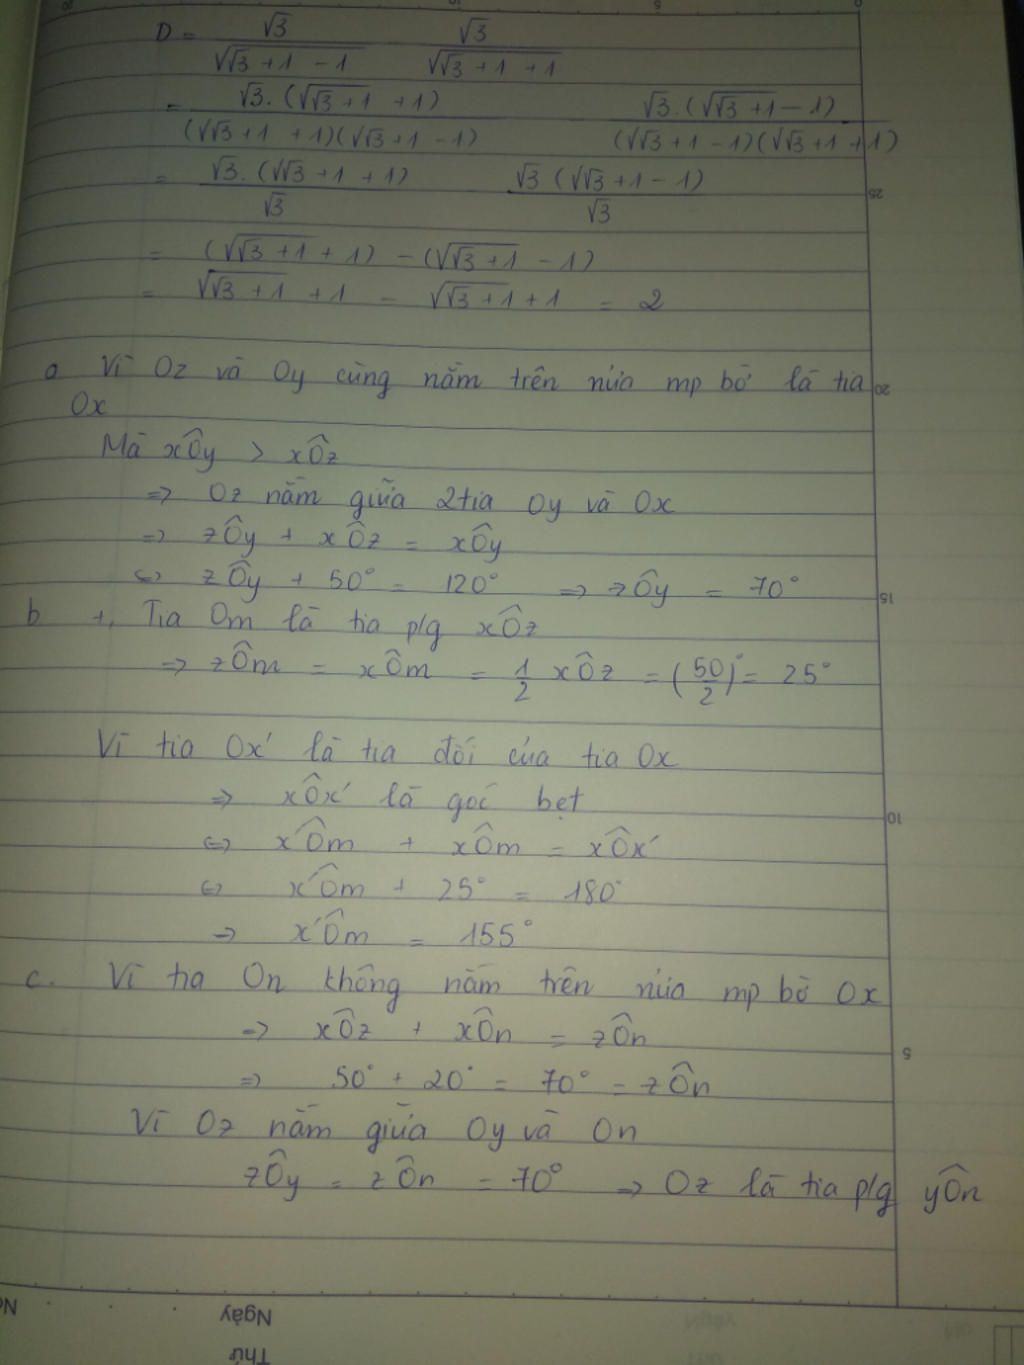 D = √3/(√(√3+1) - 1) - √3/(√(√3+1) + 1)
= √3.(√(√3+1) +1)/((√(√3+1) +1)(√(√3+1) -1)) - √3.(√(√3+1) -1)/((√(√3+1) -1)(√(√3+1) +1))
= √3.(√(√3+1) +1)/√3 - √3(√(√3+1) -1)/√3
= (√(√3+1) +1) - (√(√3+1) -1)
= √(√3+1) +1 - √(√3+1) +1 = 2
a Vì Oz và Oy cùng nằm trên nửa mp bờ là tia
Ox
Mà xÔy > xÔz
=> Oz nằm giữa 2 tia Oy và Ox
=> zÔy + xÔz = xÔy
<=> zÔy + 50° = 120° => zÔy = 70°
b +, Tia Om là tia p/g xÔz
=> zÔm = xÔm = 1/2 xÔz = (50/2)° = 25°
Vì tia Ox' là tia đối của tia Ox
=> xÔx' là góc bẹt
<=> x'Ôm + xÔm = xÔx'
<=> x'Ôm + 25° = 180°
=> x'Ôm = 155°
c. Vì tia On không nằm trên nửa mp bờ Ox
=> xÔz + xÔn = zÔn
=> 50° + 20° = 70° = zÔn
Vì Oz nằm giữa Oy và On
zÔy = zÔn = 70° => Oz là tia p/g yÔn
Ngày
Thứ